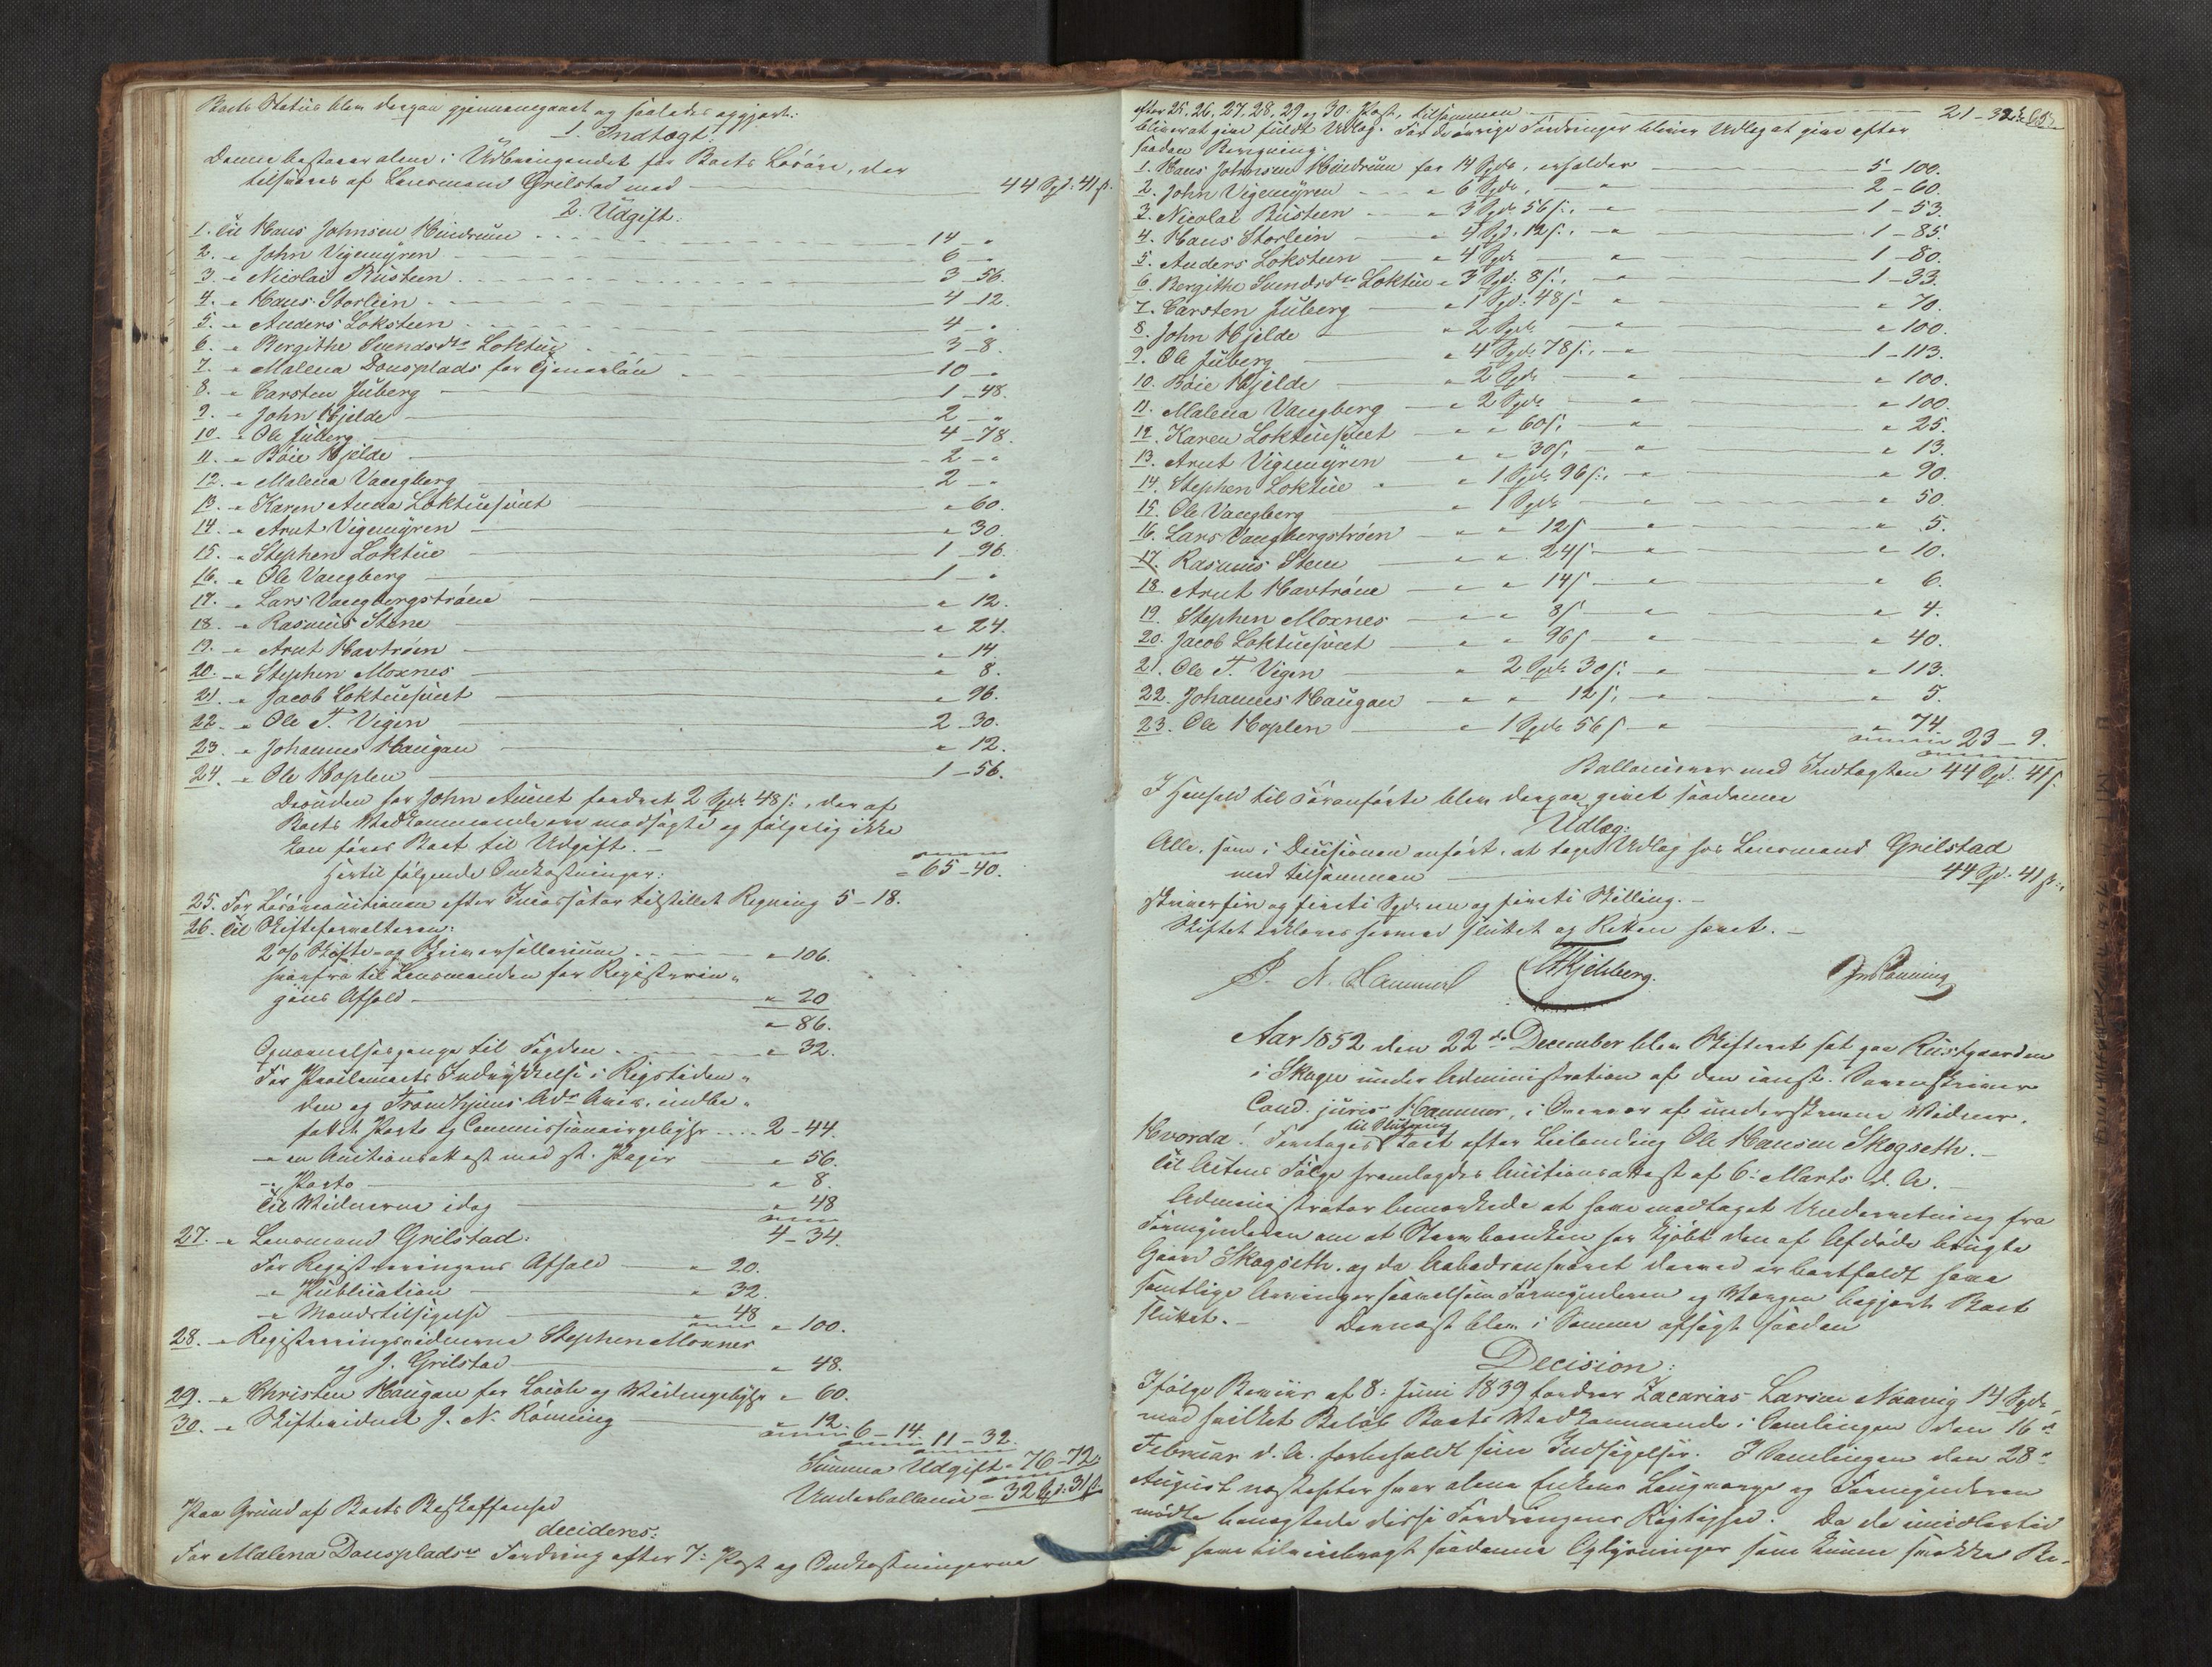 Boets Status blev derpaa gjennemgaaet og saaledes opgjort:
1. Indtægt:
Denne bestaaer alene i Udbringendet for Boets Løsøre, der
tilsvares af Lensmand Grilstad med 44 Spd. 41 s.
2. Udgift:
1. Til Hans Johnsen Hindrum 14 - "
2. " John Vigemyren 6 - "
3. " Nicolai Busteen 3 - 56.
4. " Hans Storlein 4 - 12.
5. " Anders Loksteen 4 - "
6. " Bergithe Svendsdtr Loktue 3 - 8.
7. " Malena Donsplads for Tjenerløn 10 - "
8. " Carsten Juberg 1 - 48.
9. " John Hjelde 2 - "
10. " Ole Juberg 4 - 78.
11. " Böie Hjelde 2 - "
12. " Malena Vangberg 2 - "
13. " Karen Anna Loktuesveet " 60.
14. " Arnt Vigemyren " 30.
15. " Stephen Loktue 1 - 96.
16. " Ole Vangberg 1 - "
17. " Lars Vangbergströen " 12.
18. " Rasmus Stene " 24.
19. " Arnt Havtröen " 14
20. " Stephen Moxnes " 8.
21. " Jacob Loktuesveet " 96.
22. " Ole T. Vigen 2 - 30.
23. " Johannes Haugan " 12.
24. " Ole Hoplen 1 - 56.
Desuden har John Aunet fordret 2 Spd. 48 s., der af
Boets Vedkommende er modsagte og følgelig ikke
kan føres Boet til Udgift. -
Hertil følgende Omkostninger: = 65 - 40.
25. For Løsøreauctionen efter Incassator tilstillet Regning 5 - 18.
26. Til Skifteforvalteren:
2 % Skifte- og Skriversallarium " 106.
herfra til Lensmanden for Registerin"
gens Afhold " 20
" 86.
Opnævnelsespenge til Fogden " 32.
For Proclamaets Indrykkelse i Rigstiden"
den og Trondhjems Ads Avis, indbe"
fattet Porto og Commissionairgebyhr 2 - 44.
" en Auctionsattest med st. Papir " 56.
" Porto " 8.
Til Vidnerne idag " 48
27. " Lensmand Grilstad: 4 - 34.
For Registreringens Afhold " 20.
" Publication " 32.
" Mandstilsigelse " 48 " 100.
28. " Registreringsvidnerne Stephen Moxnes
og J. Grilstad " 48.
29. " Christen Haugan for Locale og Vidnegebyhr " 60.
30. " Skiftevidnet J. N. Rönning " 12. 6 - 14. 11 - 32.
Summa Udgift = 76 - 72.
Underballance = 32 Spd. 31 s.
Paa Grund af Boets Beskaffenhed
decideres:
For Malena Donsplads's Fordring efter 7: Post og Omkostningerne
efter 25. 26. 27. 28. 29 og 30: Post, tilsammen 21 - 32.
bliver at give fuldt Udlæg. For de øvrige Fordringer bliver Udlæg at give efter
saadan Beregning:
1. Hans Johnsen Hindrum for 14 Spd., erholder 5 - 100.
2. John Vigemyren " 6 Spd., " 2 - 60.
3. Nicolai Busteen " 3 Spd. 56 s., " 1 - 53.
4. Hans Storlein " 4 Spd. 12 s., " 1 - 85.
5. Anders Loksteen " 4 Spd. " 1 - 80.
6. Bergithe Svendsdtr Loktue " 3 Spd. 8 s., " 1 - 33.
7. Carsten Juberg " 1 Spd. 48 s " " 70.
8. John Hjelde " 2 Spd. " " 100.
9. Ole Juberg " 4 Spd. 78 s., " 1 - 113.
10. Böie Hjelde " 2 Spd. " " 100.
11. Malena Vangberg " 2 Spd. " " 100.
12. Karen Loktuesveet " " 60 s; " " 25.
13. Arnt Vigemyren " " 30 s; " " 13.
14. Stephen Loktue " 1 Spd. 96 s., " " 90.
15. Ole Vangberg " 1 Spd. " " 50
16. Lars Vangbergströen " " 12 s " " 5.
17. Rasmus Stene " " 24 s " " 10.
18. Arnt Havtröen " " 14 s " " 6.
19. Stephen Moxnes " " 8 s " " 4.
20. Jacob Loktuesveet " " 96 s " " 40.
21. Ole T. Vigen " 2 Spd. 30 s. " " 113.
22. Johannes Haugan " " 12 s, " " 5.
23. Ole Hoplen " 1 Spd. 56 s " " 74.
23 - 9.
Ballancerer med Indtægten 44 Spd. 41 s.
I Henhold til Foranførte blev derpaa givet saadanne
Udlæg:
Alle, som i Decisionen anført, at tage Udlæg hos Lensmand Grilstad
med tilsammen 44 Spd. 41 s.,
skriver fire og fireti Spd. een og fireti Skilling. -
Skiftet erklæres hermed sluttet og Retten hævet. -
P. N. Hammer Kjelsberg. JNRönning
Aar 1852 den 22de December blev Skifteret sat paa Rustgaarden
i Skage under Administration af den const. Sorenskriver
Cand. juris Hammer, i Overvær af underskrevne Vidner.
Hvorda! Foretages til Slutning Boet efter Leilending Ole Hansen Skogseth. -
Til Actens Følge fremlagdes Auctionsattest af 6: Marts d. A. -
Administrator bemærkede at have modtaget Underretning fra
Formynderen om at Steenbænken har kjøbt den af Afdøde brugte
Gaard Skogseth, og da Aabodsansvaret dermed er bortfaldt have
samtlige Arvinger saavelsom Formynderen og Værgen begjært Boet
sluttet. - Dernæst blev i Samme afsagt saadan
Decision:
Ifølge Beviis af 8: Juni 1839 fordrer Zacarias Larsen Naavig 14 Spd.,
mod hvilket Beløb Boets Vedkommende i Samlingen den 16de
Februar d. A. forbeholdt sine Indsigelser. I Samlingen den 28de
August næstefter hvor alene Enkens Laugværge og Formynderen
mødte benægtede disse Fordringens Rigtighed. Da de imidlertid
have tilveiebragt saadanne Oplysninger som kunne svække Be-